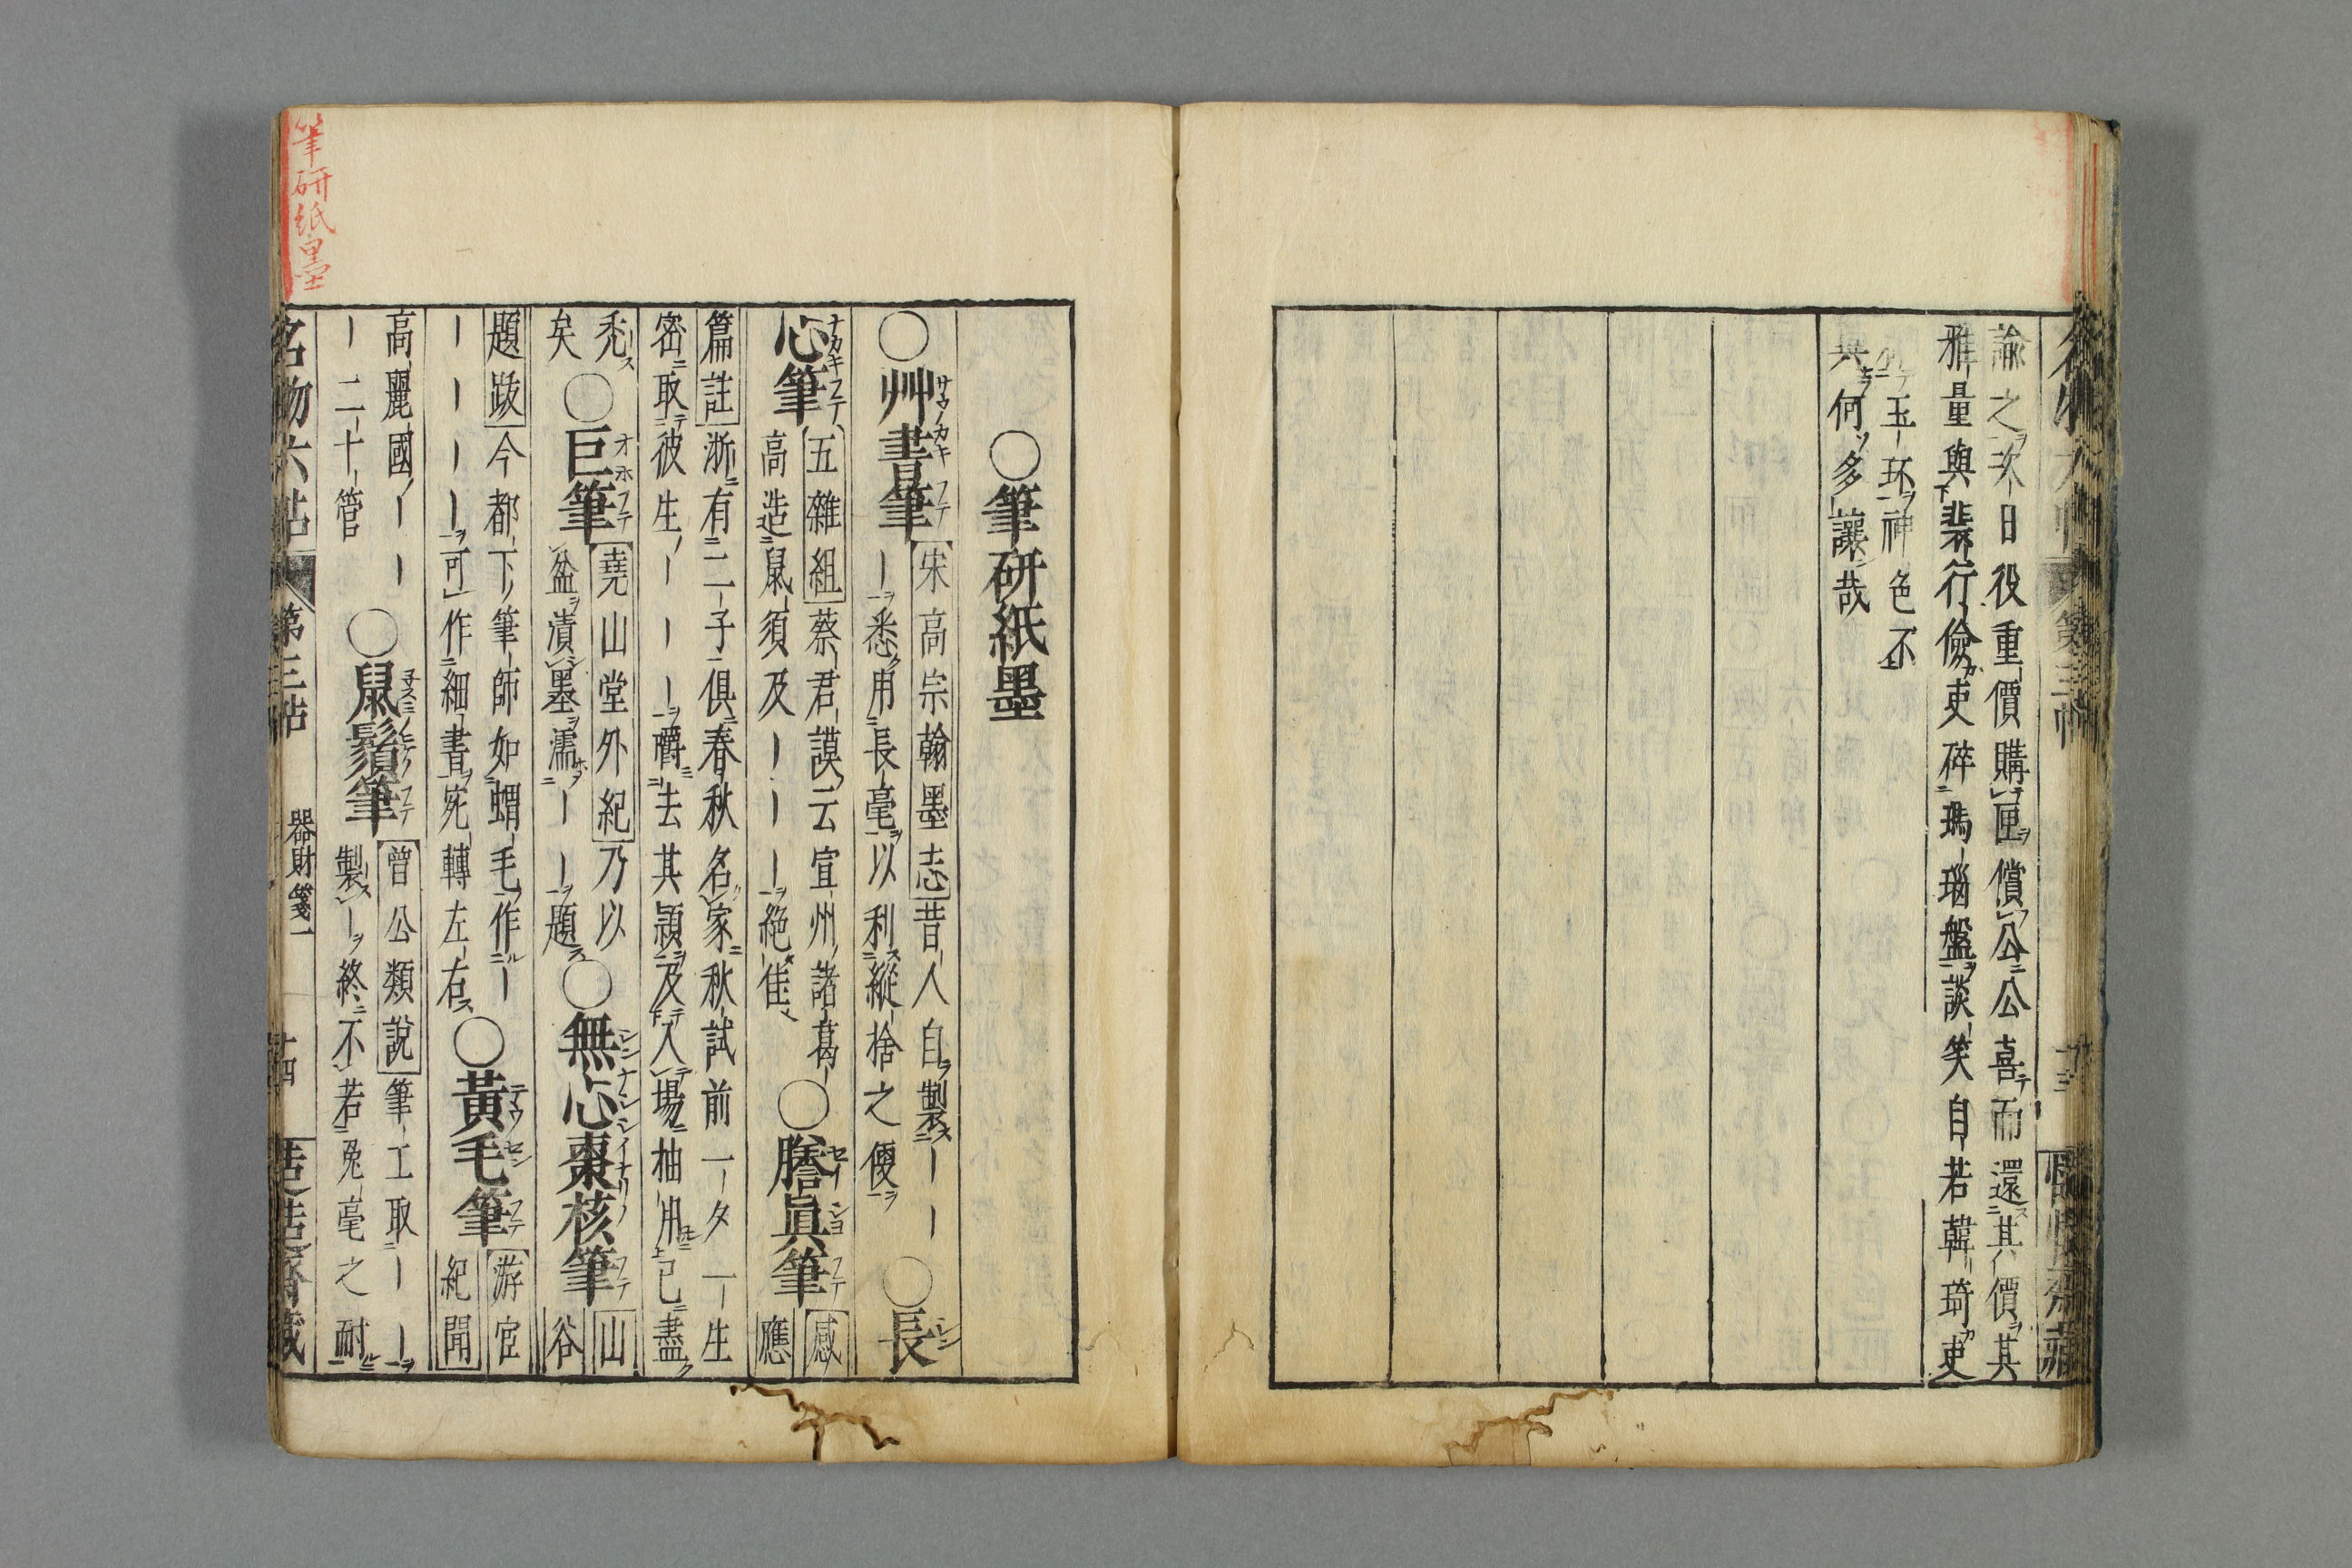 諭之次日役重價購匣償公公喜而還其價其
雅量與裴行儉吏碎瑪瑙盤談笑自若韓琦吏
玉環神色不
異何多讓哉
筆研紙墨
○筆研紙墨
○艸書筆
宋高宗翰墨志昔人自製ーー
ー悉用長毫以利縱捨之便
○長
心筆
五雜組蔡君謨云宣州諸葛
高造鼠須及ーーー絶佳
○謄眞筆
感
應
篇註浙有二子俱春秋名家秋試前一夕一生
密取彼生ーーー嚼去其穎及入場抽用已盡
禿
矣
○巨筆
堯山堂外紀乃以
盆漬墨濡ーー題
○無心棗核筆
山
谷
題跋今都下筆師如蝟毛作ー
ーーーー可作細書宛轉左右
○黃毛筆
游宦
紀聞
高麗國ーー
ー二十管
○鼠鬚筆
曾公類說筆工取ーー
製ー終不若兔毫之耐
名物六帖
第三帖
器財箋一
十四